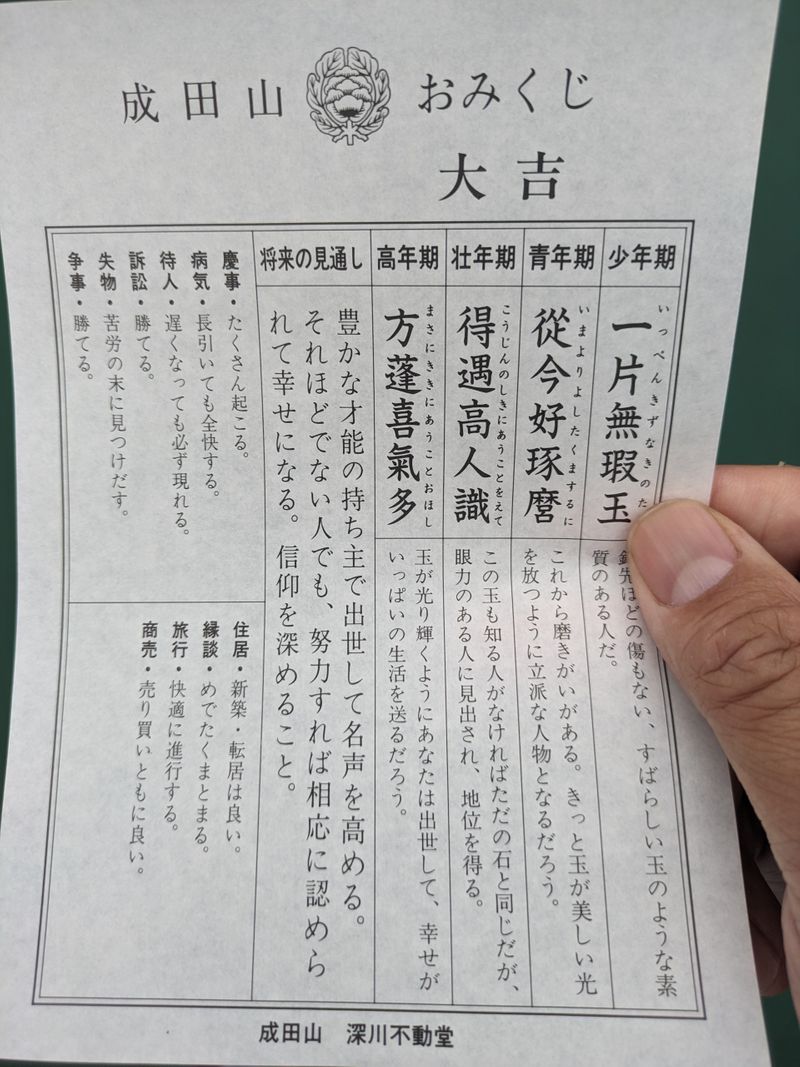 成田山 おみくじ
大吉
少年期
いっぺんきずなきのた
一片無瑕玉
先ほどの傷もない、すばらしい玉のような素
質のある人だ。
青年期
いまよりよしたくまするに
從今好琢磨
これから磨きがいがある。きっと玉が美しい光
を放つように立派な人物となるだろう。
壮年期
こうじんのしきにあうことをえて
得遇高人識
この玉も知る人がなければただの石と同じだが、
眼力のある人に見出され、地位を得る。
高年期
まさにききにあうことおほし
方蓬喜氣多
玉が光り輝くようにあなたは出世して、幸せが
いっぱいの生活を送るだろう。
将来の見通し
豊かな才能の持ち主で出世して名声を高める。
それほどでない人でも、努力すれば相応に認めら
れて幸せになる。信仰を深めること。
慶事・たくさん起こる。
病気・長引いても全快する。
待人・遅くなっても必ず現れる。
訴訟・勝てる。
失物・苦労の末に見つけだす。
争事・勝てる。
住居・新築・転居は良い。
縁談・めでたくまとまる。
旅行・快適に進行する。
商売・売り買いともに良い。
成田山 深川不動堂